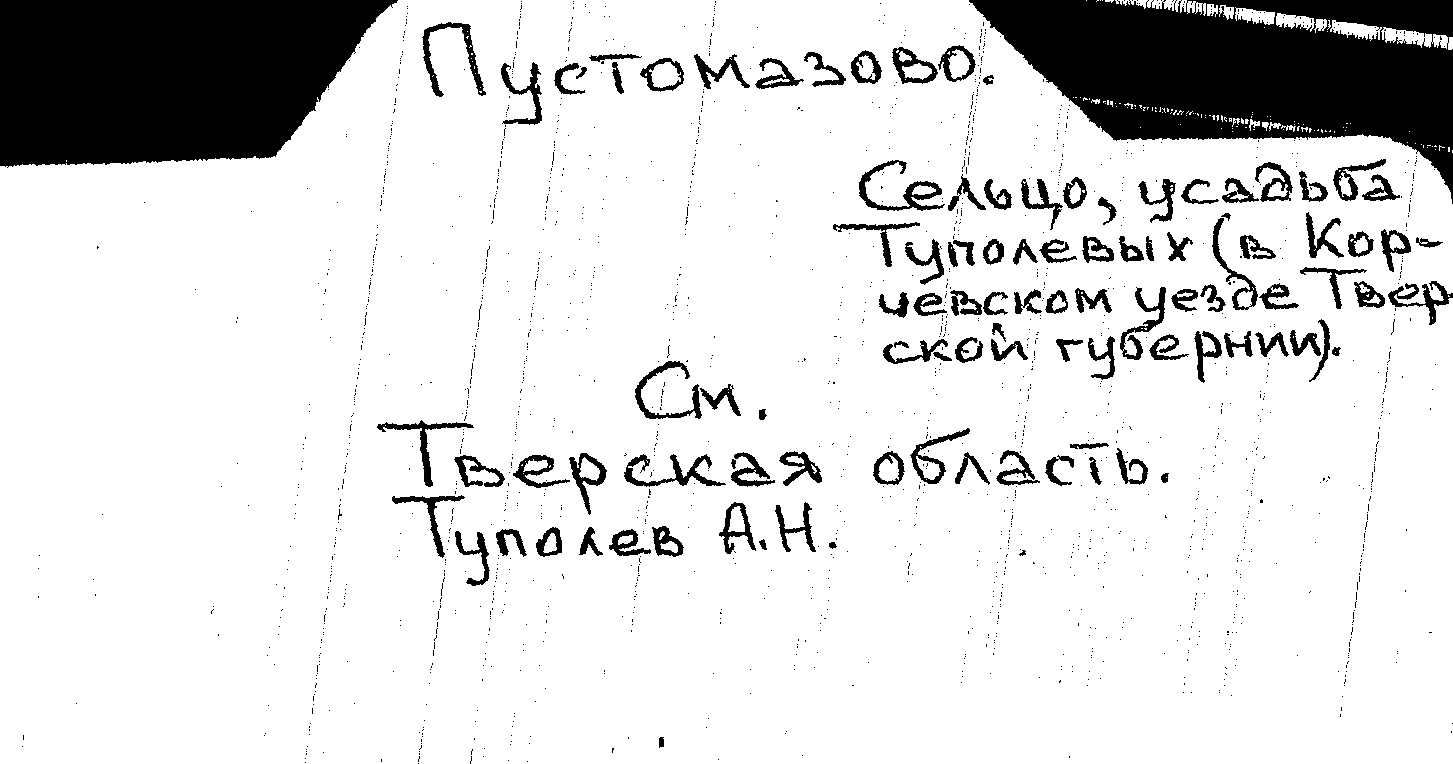 Пустомазово.
Сельцо, усадьба
Туполевых (в Кор-
чевском уезде Твер-
ской губернии).
См.
Тверская область.
Туполев А.Н.